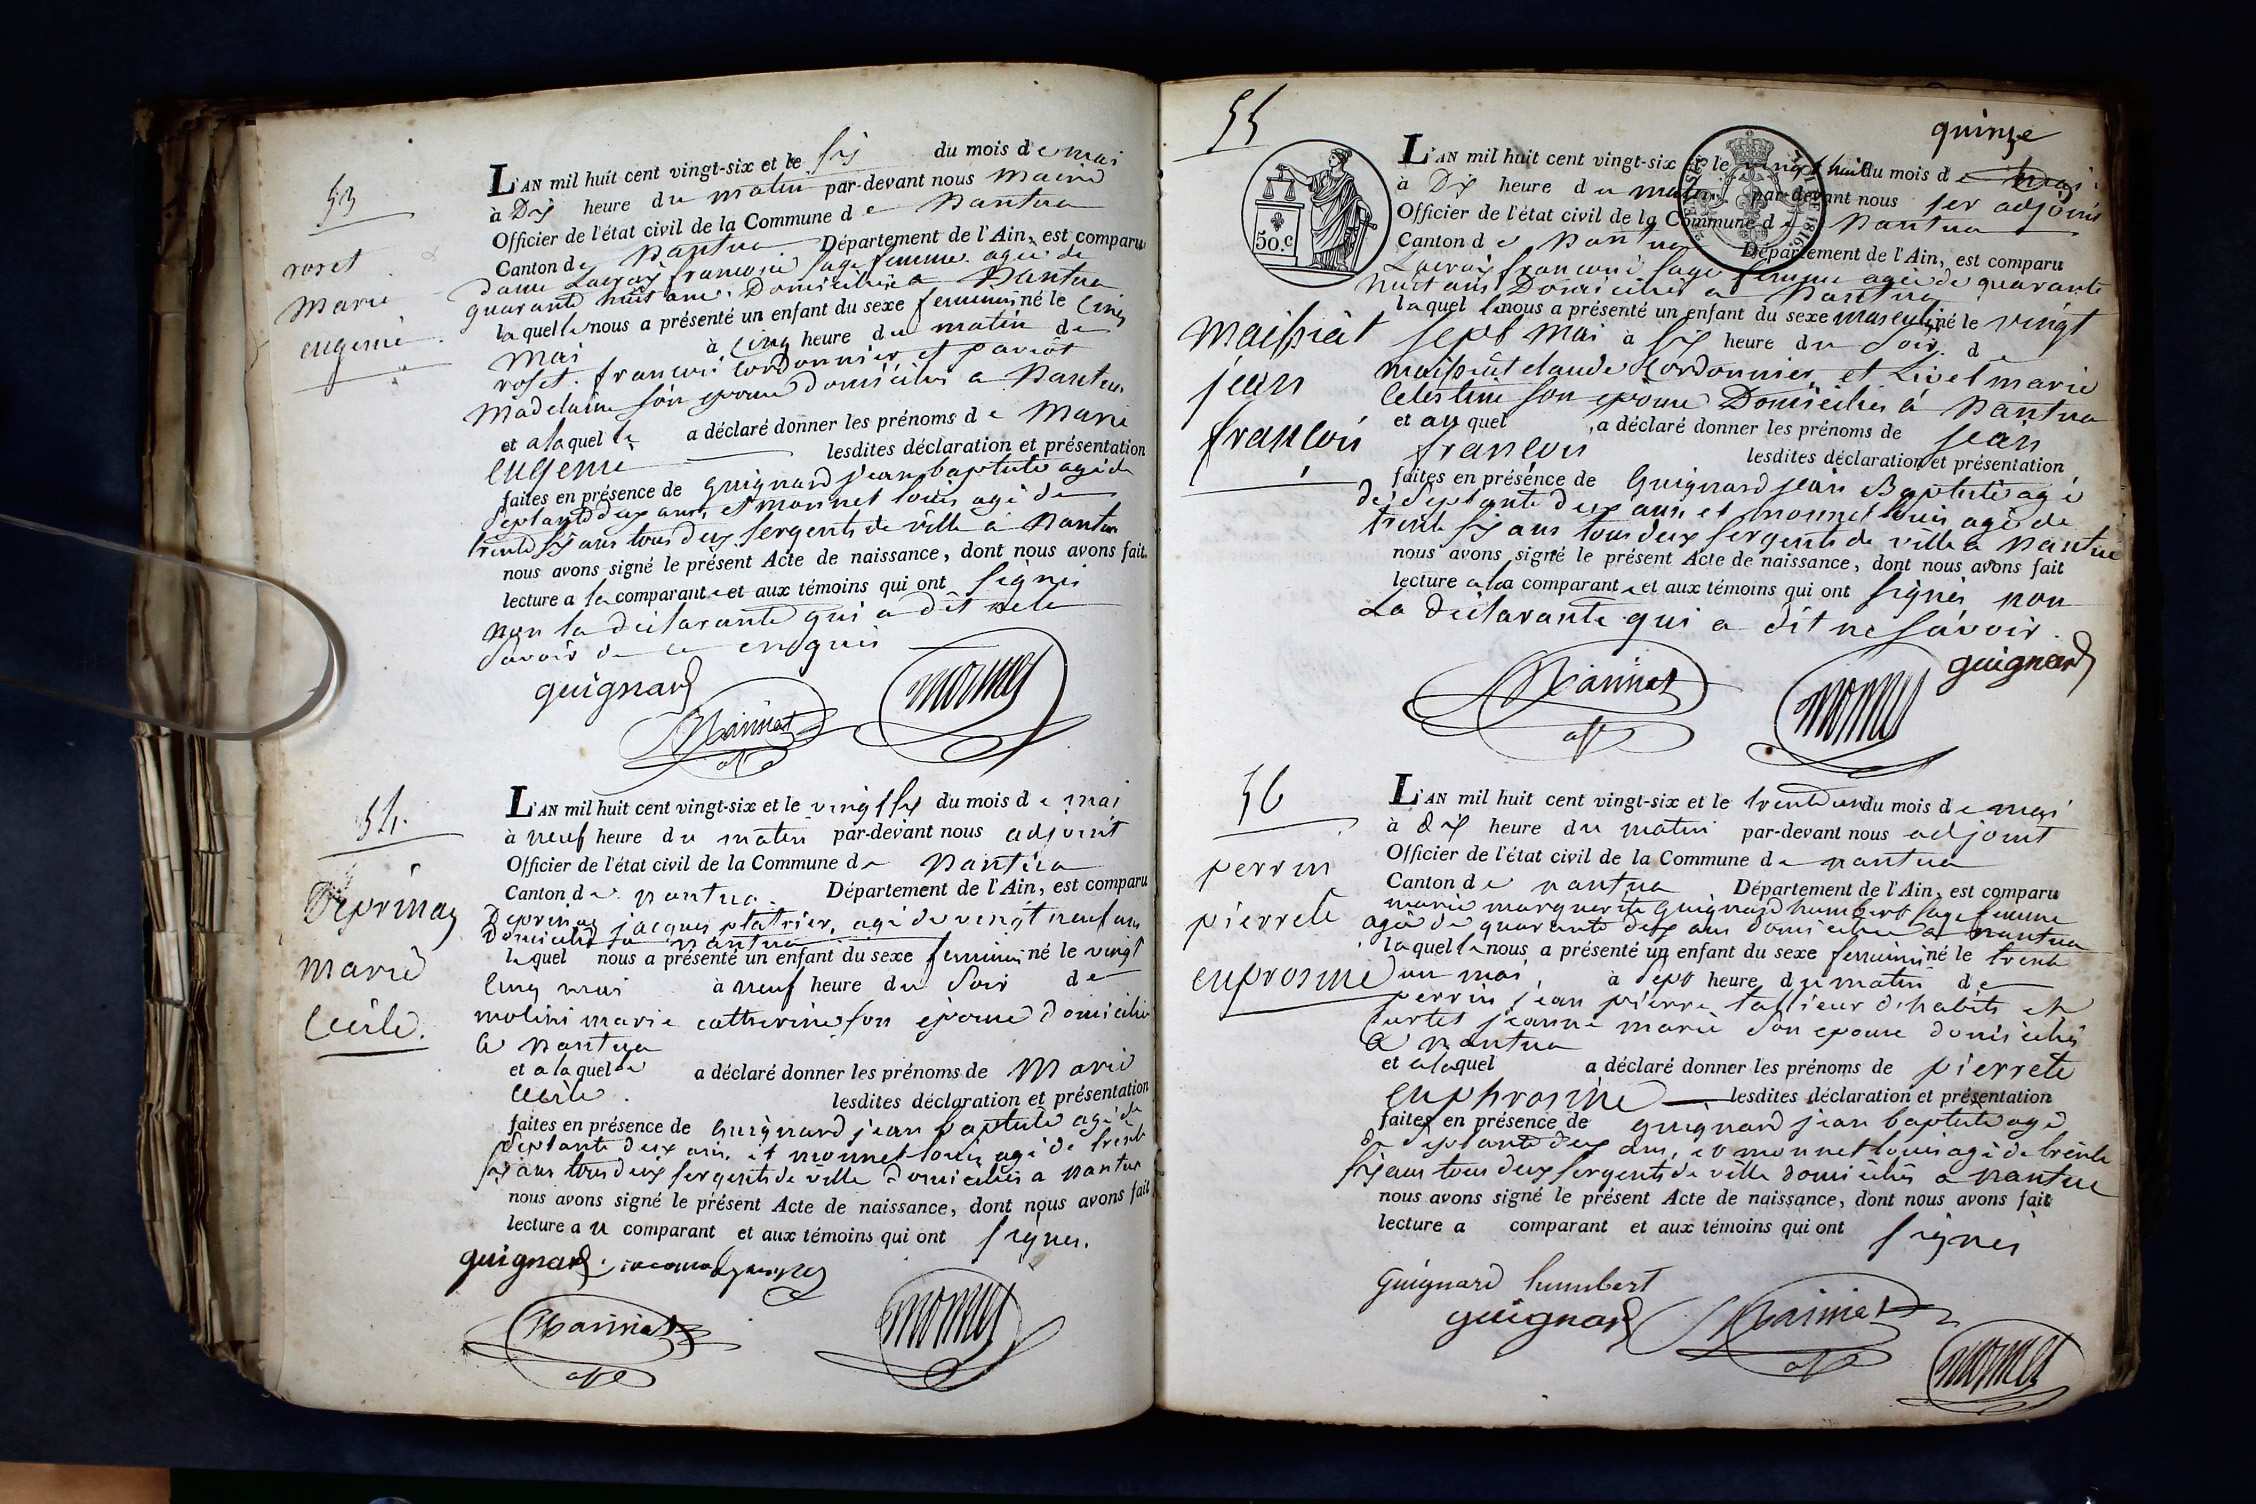 53
roset
marie
eugenie
L'AN mil huit cent vingt-six et le six du mois de mai
à Dix heure du matin par-devant nous maire
Officier de l'état civil de la Commune de Nantua
Canton de Nantua Département de l'Ain, est comparu
dame Lacroix francoise sage femme agée de
quarante huit ans Domiciliée a Nantua
laquelle nous a présenté un enfant du sexe feminin né le cinq
mai à cinq heure du matin de
roset francois Cordonnier et
Madelaine son epouse domiciliés a Nantua
et a laquelle a déclaré donner les prénoms de Marie
eugenie lesdites déclaration et présentation
faites en présence de guignard jean baptiste agé de
septante deux ans, et monnet louis agé de
trente six ans tous deux sergents de ville à Nantua
nous avons signé le présent Acte de naissance, dont nous avons fait
lecture a la comparante et aux témoins qui ont signés
non la déclarante qui a dit ne le
savoir de ce enquis
guignard
monnet
54.
Deprinay
marie
Cécile.
L'AN mil huit cent vingt-six et le vingt six du mois de mai
à neuf heure du matin par-devant nous adjoint
Officier de l'état civil de la Commune de Nantua
Canton de nantua. Département de l'Ain, est comparu
Deprinay jacques platrier, agé de vingt neuf ans
Domicilié a nantua
lequel nous a présenté un enfant du sexe feminin né le vingt
cinq mai à neuf heure du soir de
molini marie catherine son epouse domiciliés
a nantua
et a laquelle a déclaré donner les prénoms de Marie
Cécile. lesdites déclaration et présentation
faites en présence de Guignard jean baptiste agé de
septante deux ans, et monnet louis agé de trente
six ans tous deux sergents de ville domiciliés a nantua
nous avons signé le présent Acte de naissance, dont nous avons fait
lecture au comparant et aux témoins qui ont signés.
guignard
monnet
quinze
55
50.c
1816.
maissiat
jean
françois
L'AN mil huit cent vingt-six et le vingt huit du mois de mai
à Dix heure du matin par-devant nous 1er adjoint
Officier de l'état civil de la Commune de Nantua
Canton de Nantua Département de l'Ain, est comparu
Lacroix francoise sage femme agée de quarante
huit ans Domiciliée a Nantua
laquelle nous a présenté un enfant du sexe masculin né le vingt
sept mai à six heure du soir de
maissiat claude Cordonnier, et Livet marie
Celestine son epouse Domiciliés à Nantua
et auquel a déclaré donner les prénoms de jean
françois lesdites déclaration et présentation
faites en présence de Guignard jean Baptiste agé
de septante deux ans, et monnet louis agé de
trente six ans tous deux sergents de ville a nantua
nous avons signé le présent Acte de naissance, dont nous avons fait
lecture a la comparante et aux témoins qui ont signés non
La déclarante qui a dit ne savoir.
guignard
monnet
56
perrin
pierrete
euprosine
L'AN mil huit cent vingt-six et le trente un du mois de mai
à dix heure du matin par-devant nous adjoint
Officier de l'état civil de la Commune de nantua
Canton de nantua Département de l'Ain, est comparu
marie marguerite Guignard humbert sage femme
agée de quarante deux ans domiciliée a nantua
laquelle nous a présenté un enfant du sexe feminin né le trente
un mai, à sept heure du matin de
perrin jean pierre tailleur d'habits et
curtet jeanne marie son epouse domiciliés
a nantua
et a laquel a déclaré donner les prénoms de pierrete
euphrosine lesdites déclaration et présentation
faites en présence de guignard jean baptiste agé
de septante deux ans, et monnet louis agé de trente
six ans tous deux sergents de ville domiciliés a nantua
nous avons signé le présent Acte de naissance, dont nous avons fait
lecture a comparant et aux témoins qui ont signés
Guignard humbert
guignard
monnet